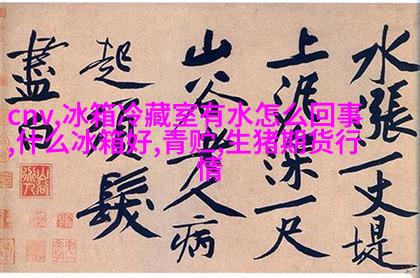 cnv,冰箱冷藏室有水怎么回事
,什么冰箱好,青贮,生猪期货行
情
水漲一丈堤
上泥深一尺
山谷老人病
起鬚髮
盡白